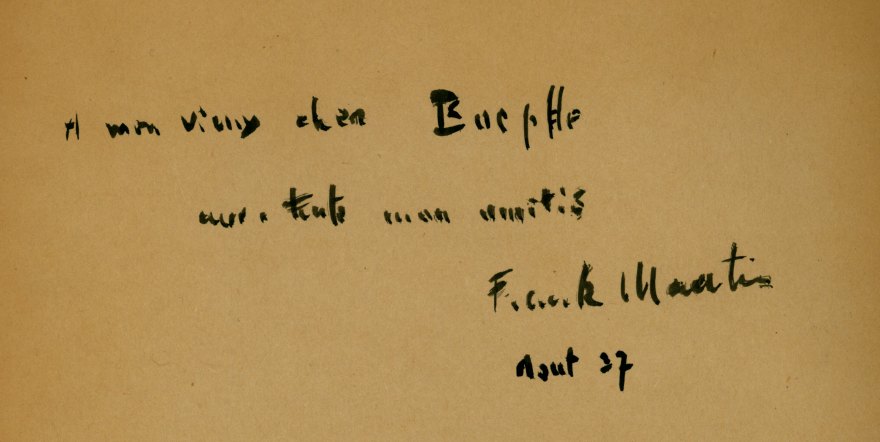 A mon vieux cher
avec toute mon amitié
Frank Martin
Aout 37